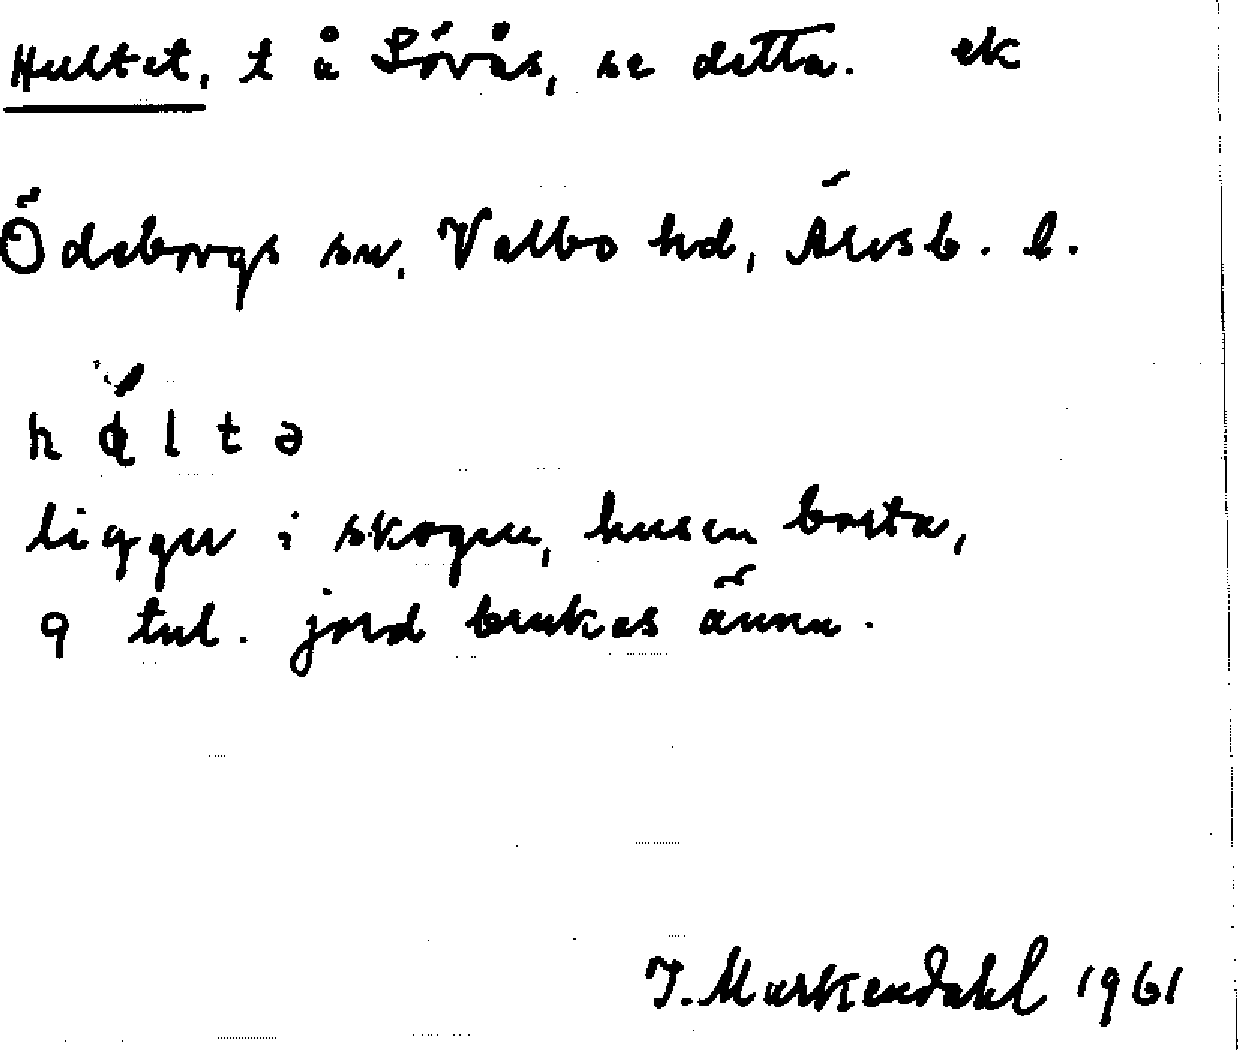 Hultet, t å Lövås, se detta. ek
Ödeborgs sn, Valbo hd, Älvsb. l.
ligger i skogen, husen borta,
9 tnl. jord brukas ännu.
J. Markendahl 1961